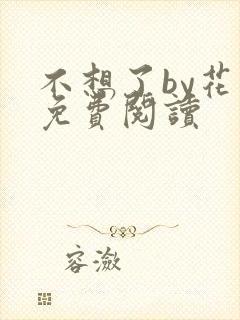 不想了by花
免費閱讀
容瀲